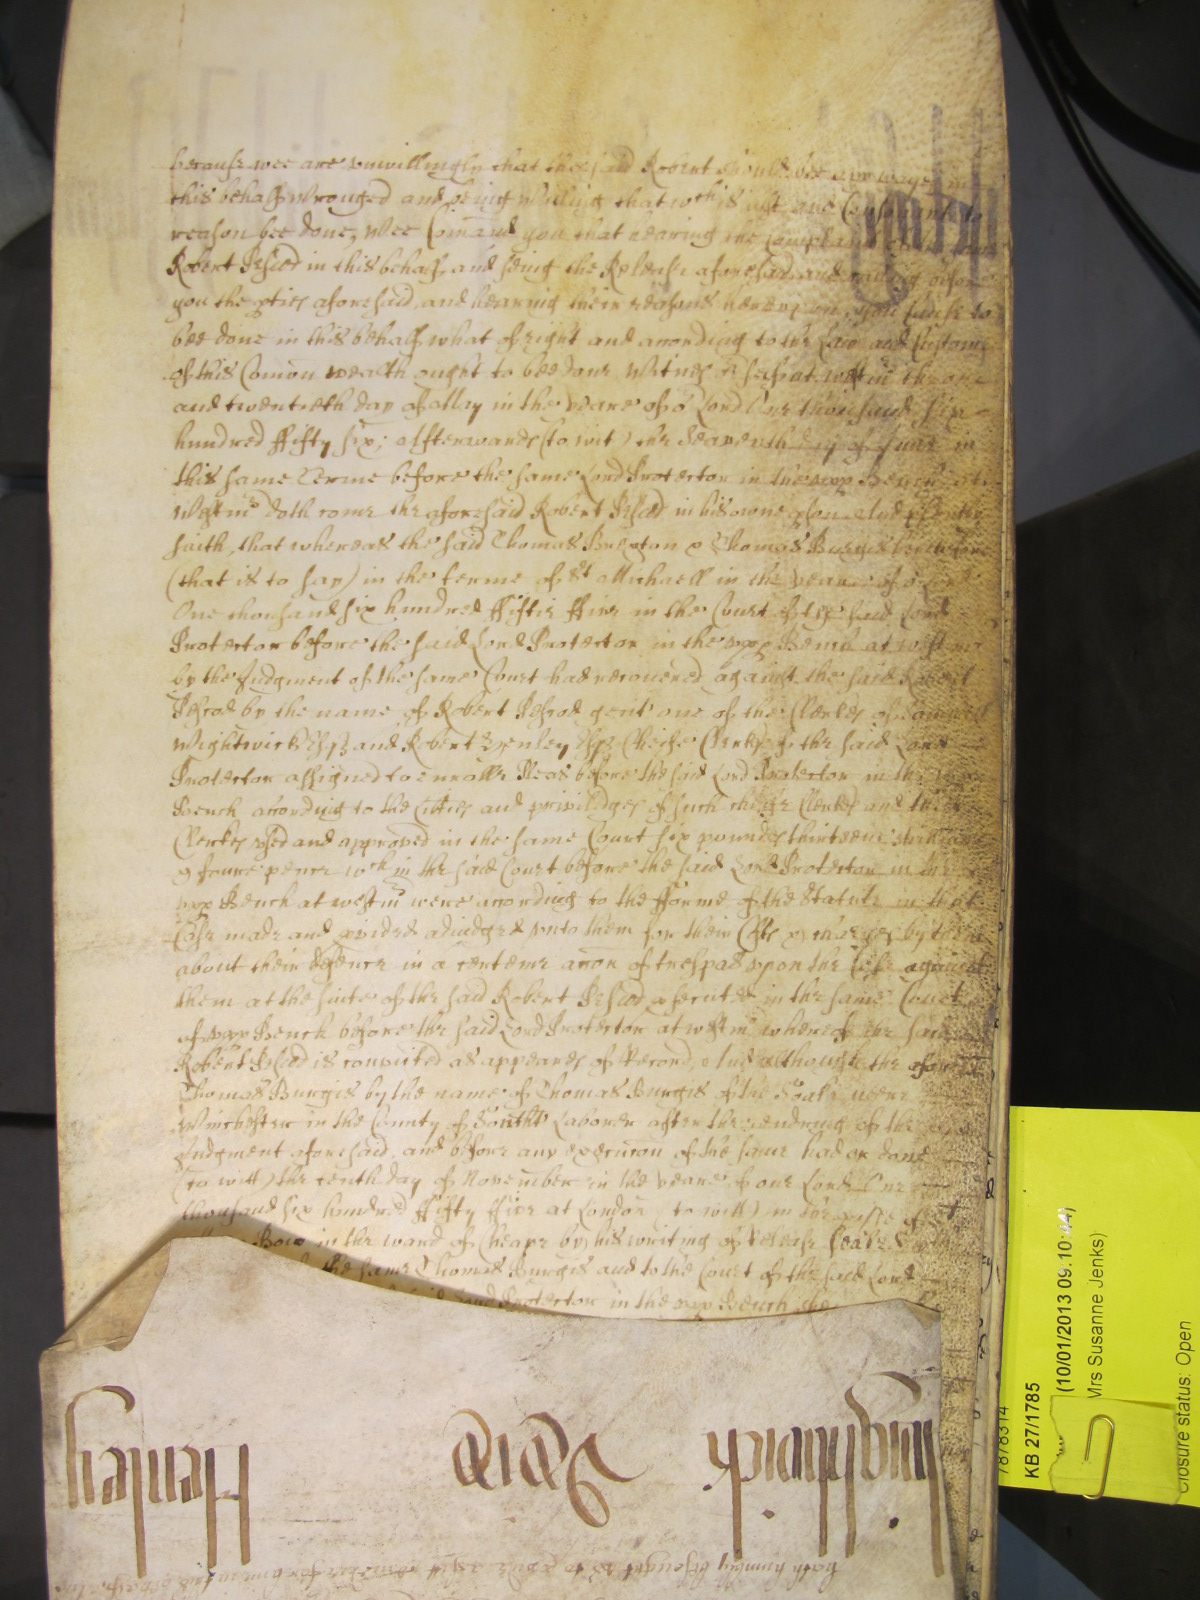 because wee are unwillingly that the said Robert should bee any wayes in
this behalf wronged and being willing that wch is just and Consonant to
reason bee done, Wee Comand you that hearing the Complaint of the said
Robert in this behalf and seing the Release aforesaid and calling before
you the pties aforesaid and hearing their reasons hereupon, you Cause to
bee done in this behalf what of right and according to the Law and Custome
of this Comon wealth ought to bee done Witnes or self at Westmr the one
and twentieth day of May in the yeare of or Lord One thousand six
hundred ffifty six; Afterwards (to wit) the Seaventh day of June in
this same Terme before the same Lord Protector in the upp Bench at
Westmr doth come the aforesaid Robert in his owne pson And
saith, that whereas the said Thomas Buxton & Thomas Burgis heretofore
(that is to say) in the terme of St Michaell in the yeare of or Lord
One thousand six hundred ffiftie ffive in the Court of the said Lord
Protector before the said Lord Protector in the upp Bench at Westmr
by the Judgment of the same Court had recovered against the said Robert
by the name of Robert gent one of the Clerkes of Samuell
Wightwick Esqr and Robert Henley Esqr Cheife Clerkes of the said Lord
Protector assigned to enrolle Pleas before the said Lord Protector in the upp
Bench according to the Custies and priviledges of such cheife Clerkes and their
Clerkes used and approved in the same Court six poundes thirteene shillings
& foure pence wch in the said Court before the said Lord Protector in the
upp Bench at Westmr were according to the fforme of the Statute in that
Case made and pvided adiudged unto them for their Costs & charges by them
about their defence in a certeine accon of trespas upon the Case against
them at the suite of the said Robert psecuted in the same Court
of upp Bench before the said Lord Protector at Westmr whereof the said
Robert is convicted as appeares of Record, And although the aforesaid
Thomas Burgis by the name of Thomas Burgis of the Soake neere
Winchester in the County of Southt Laborer after the rendring of the
Judgment aforesaid, and before any execucon of the same had or done
(to witt) the tenth day of November in the yeare of our Lord One
thousand six hundred ffifty ffive at London (to witt) in the pishe of
Bow in the ward of Cheape by his writing of Release Sealed
the same Thomas Burgis and to the Court of the said Lord
Lord Protector in the upp Bench
Wightwick
Henley
KB 27/1785
(10/01/2013 09:10:44)
Mrs Susanne Jenks)
Closure status: Open